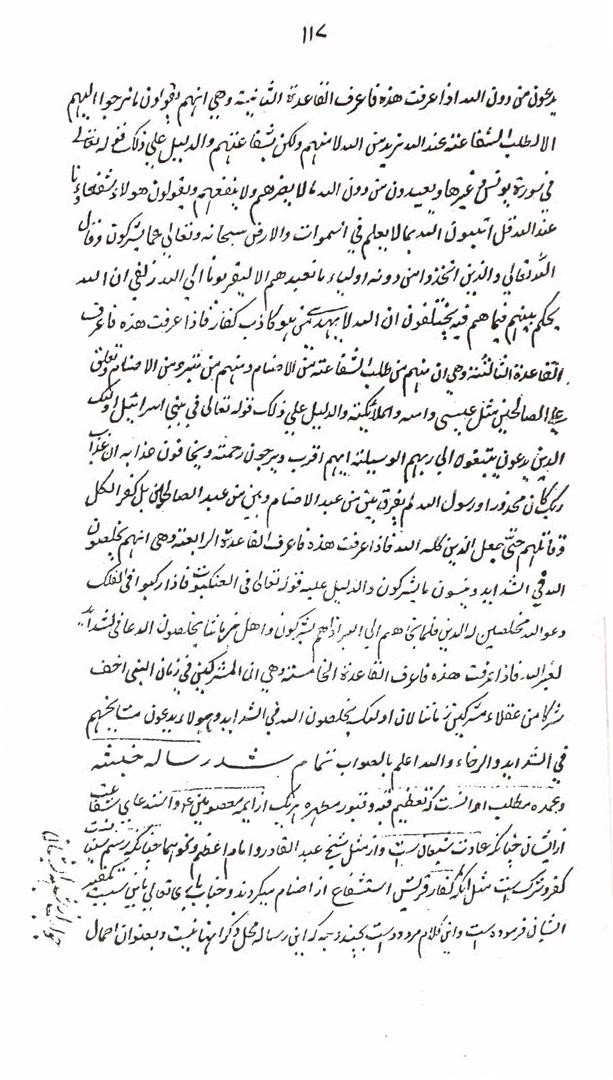 ١١٧
يدعون من دون الله اذا عرفت هذه فاعرف القاعدة الثانية وهي انهم يقولون ما نرجوا اليهم
الا لطلب الشفاعة عند الله نريد من الله لا منهم ولكن بشفاعتهم والدليل على ذلك قوله تعالى
في سورة يونس وغيرها ويعبدون من دون الله ما لا يضرهم ولا ينفعهم ويقولون هولاء شفعاؤنا
عند الله قل اتنبئون الله بما لا يعلم في السموات والارض سبحانه وتعالى عما يشركون وقال
الله تعالى والذين اتخذوا من دونه اولياء ما نعبدهم الا ليقربونا الى الله زلفى ان الله
يحكم بينهم فيما هم فيه يختلفون ان الله لا يهدي من هو كاذب كفار فاذا عرفت هذه فاعرف
القاعدة الثالثة وهي ان منهم من طلب الشفاعة من الاصنام ومنهم من تبرء من الاصنام وتعلق
على الصالحين مثل عيسى وامه والملائكة والدليل على ذلك قوله تعالى في بني اسرائيل اولئك
الذين يدعون يبتغون الى ربهم الوسيلة ايهم اقرب ويرجون رحمته ويخافون عذابه ان عذاب
ربك كان محذورا ورسول الله لم يفرق بين من عبد الاصنام وبين من عبد الصالحين بل كفر الكل
وقاتلهم حتى جعل الدين كله الله فاذا عرفت هذه فاعرف القاعدة الرابعة وهي انهم يخلصون
الله في الشدايد وينسون ما يشركون والدليل عليه قوله تعالى في العنكبوت فاذا ركبوا في الفلك
دعوا الله مخلصين له الدين فلما نجاهم الى البر اذاهم يشركون واهل زماننا يخلصون الدعا في الشدايد
لغير الله فاذا عرفت هذه فاعرف القاعدة الخامسة وهي ان المشركين في زمان النبي اخف
شركا من عقلاء مشركين زماننا لان اولئك يخلصون الله في الشدايد وهولاء يدعون مشايخهم
في الشدايد والرخاء والله اعلم بالصواب تمام شد رساله خبيثه
وعمده مطلب او انست كه تعظيم قبه و قبور مطهره هريك از ايمه معصومين ع واستدعاى شفاعت
از ايشان چنانكه عادت شيعيان است و از مثل شيخ عبد القادر و امام اعظم ونحوهما چنانكه رسم سنيان است
كفر و شرك است مثل آنكه كفار قريش استشفاع از اصنام ميكردند وجناب بارى تعالى باين سبب تكفير
ايشان فرموده است واين كلام مردود است بچند وجه كه اين رساله محل ذكر آنها نيست وبعنوان اجمال